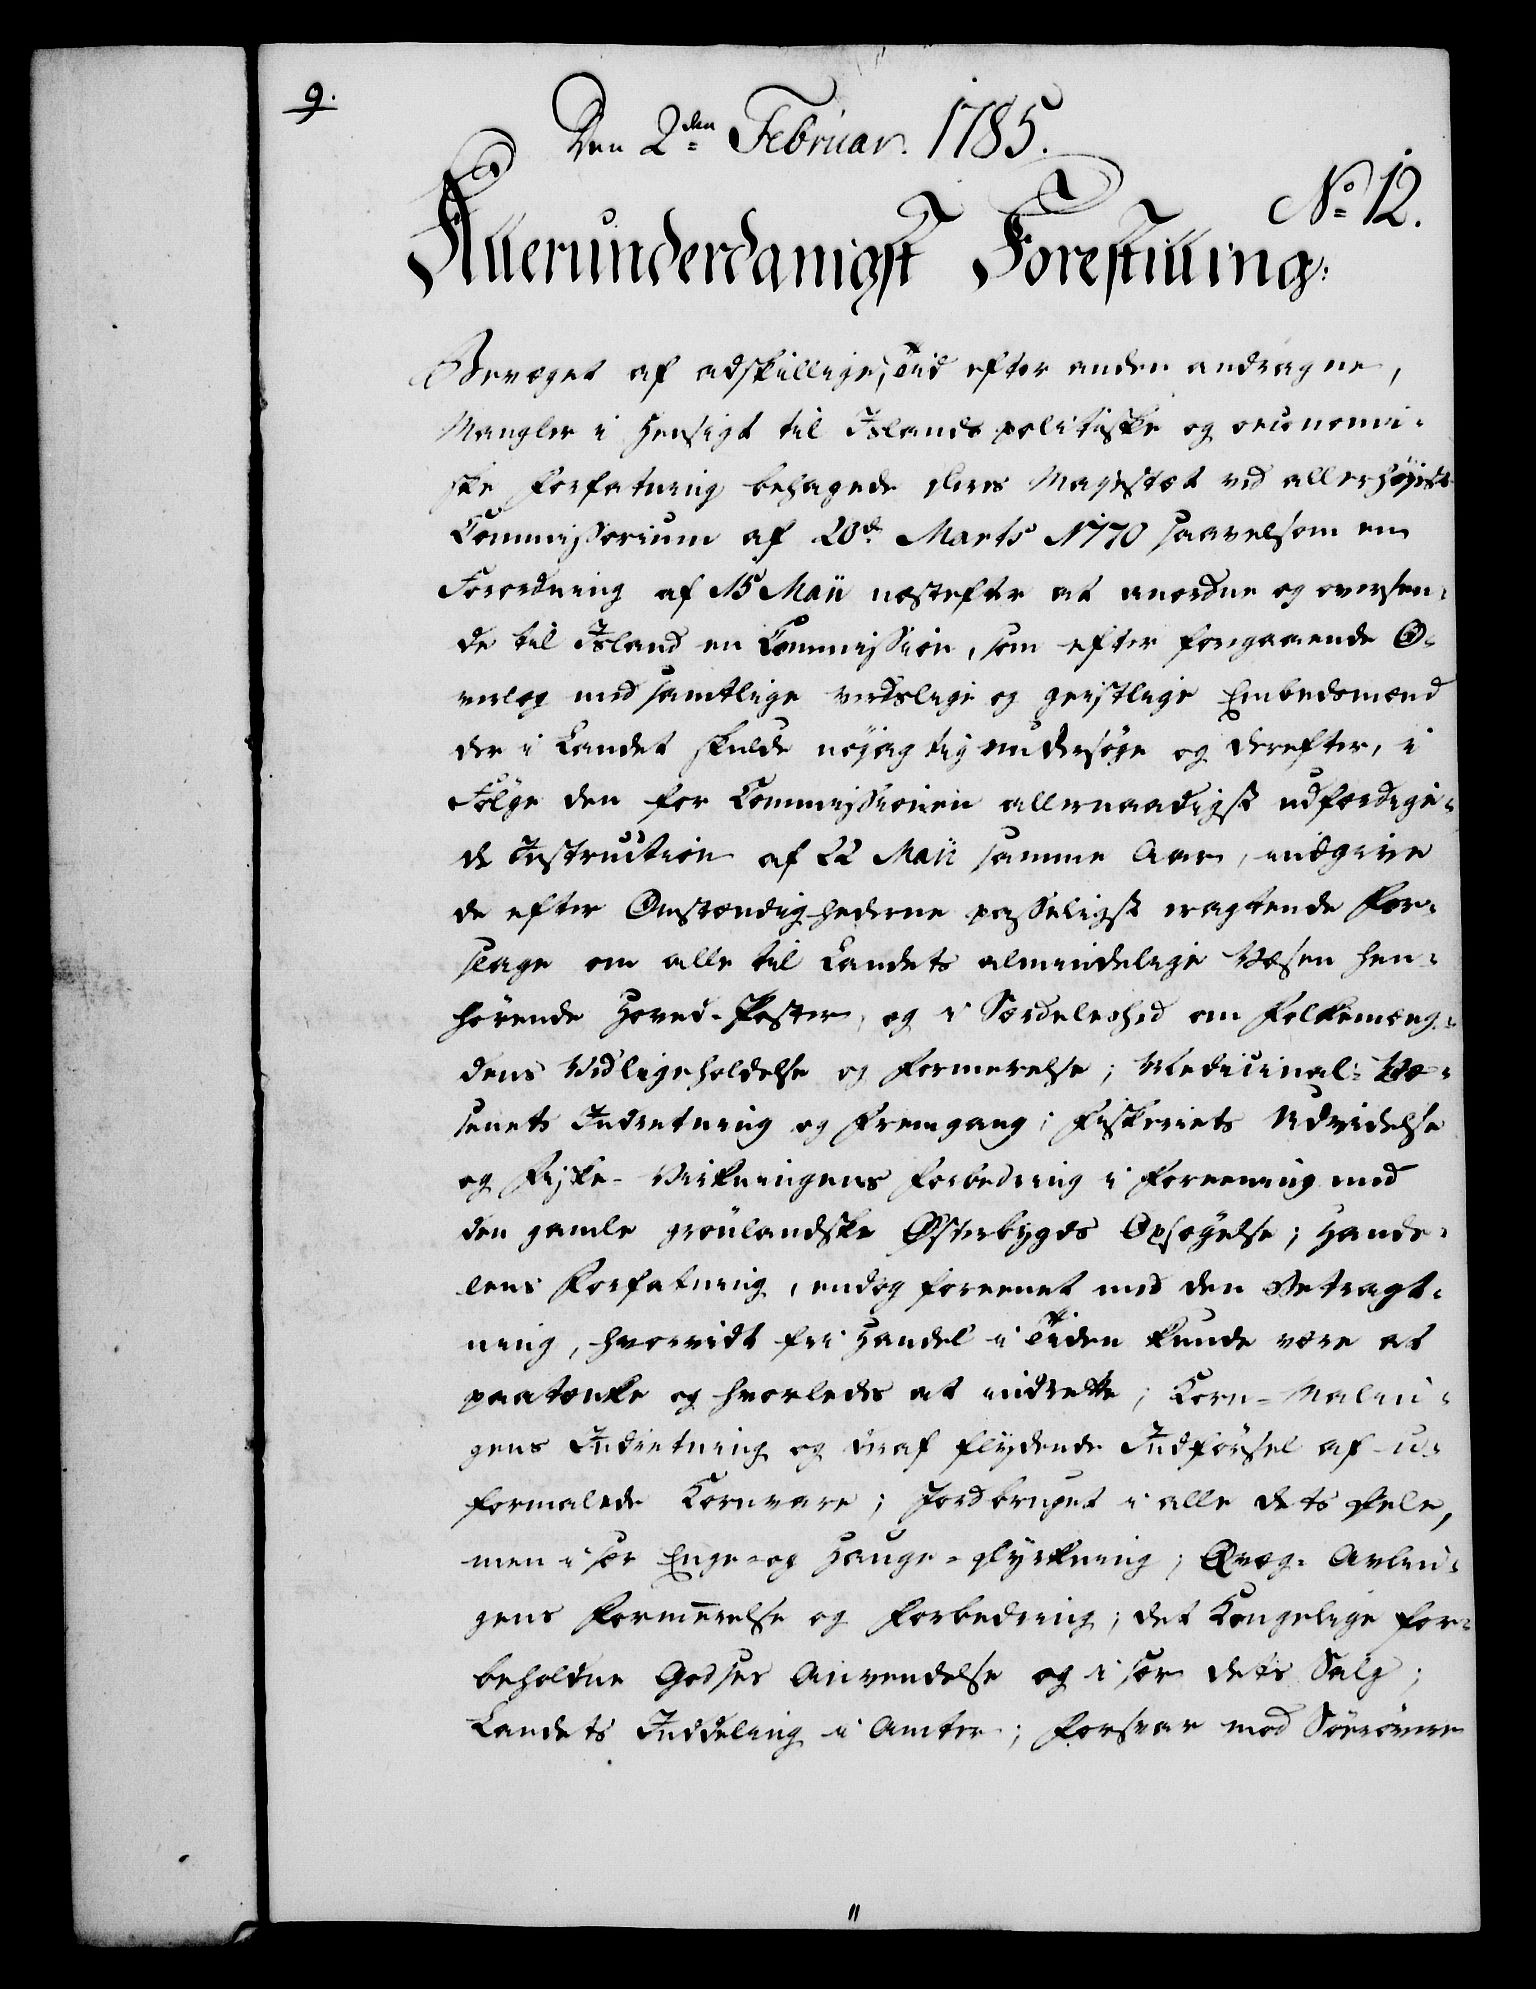 9.
Den 2den Februar. 1785.
No 12.
Allerunderdanigst Forestilling:
Bevæget af adskillige, Tid efter anden andragne,
Mangler i Hensigt til Islands politiske og oeconomi-
ske Forfatning behagede Deres Majestæt ved allerhøjeste
Commissorium af 20de Marts 1770 saavelsom en
Forordning af 15 Maii næstefter at anordne og oversen-
de til Island en Commission, som efter foregaaende O-
verlæg med samtlige verdslige og geistlige Embedsmænd
der i Landet skulde nøjagtig undersøge og derefter, i
Følge den for Commissionen allernaadigst udfærdige-
de Instruction af 22 Maii samme Aar, indgive
de efter Omstændighederne passeligst eragtende For-
slage om alle til Landets almindelige Væsen hen-
hørende Hoved-Poster, og i Særdeleshed om Folkemæng-
dens Vedligeholdelse og Formerelse; Medicinal-Væ-
senets Indretning og Fremgang; Fiskeriets Udvidelse
og Fiske-Virkningens Forbedring i Foreening med
den gamle grønlandske Østerbygds Opsøgelse; Hande-
lens Forfatning, endog foreenet med den Betragt-
ning, hvorvidt fri Handel i Tiden kunde være at
paatænke og hvorledes at indrette; Korn-Malin-
gens Indretning og deraf flydende Indførsel af u-
formalede Kornvare; Jordbruget i alle dets Dele,
men især Enge- og Hauge-Dyrkning; Qvæg-Avlin-
gens Formerelse og Forbedring; det Kongelige for-
beholdne Godses Anvendelse og især dets Salg;
Landets Inddeling i Amter; Forsvar mod Søerøvere